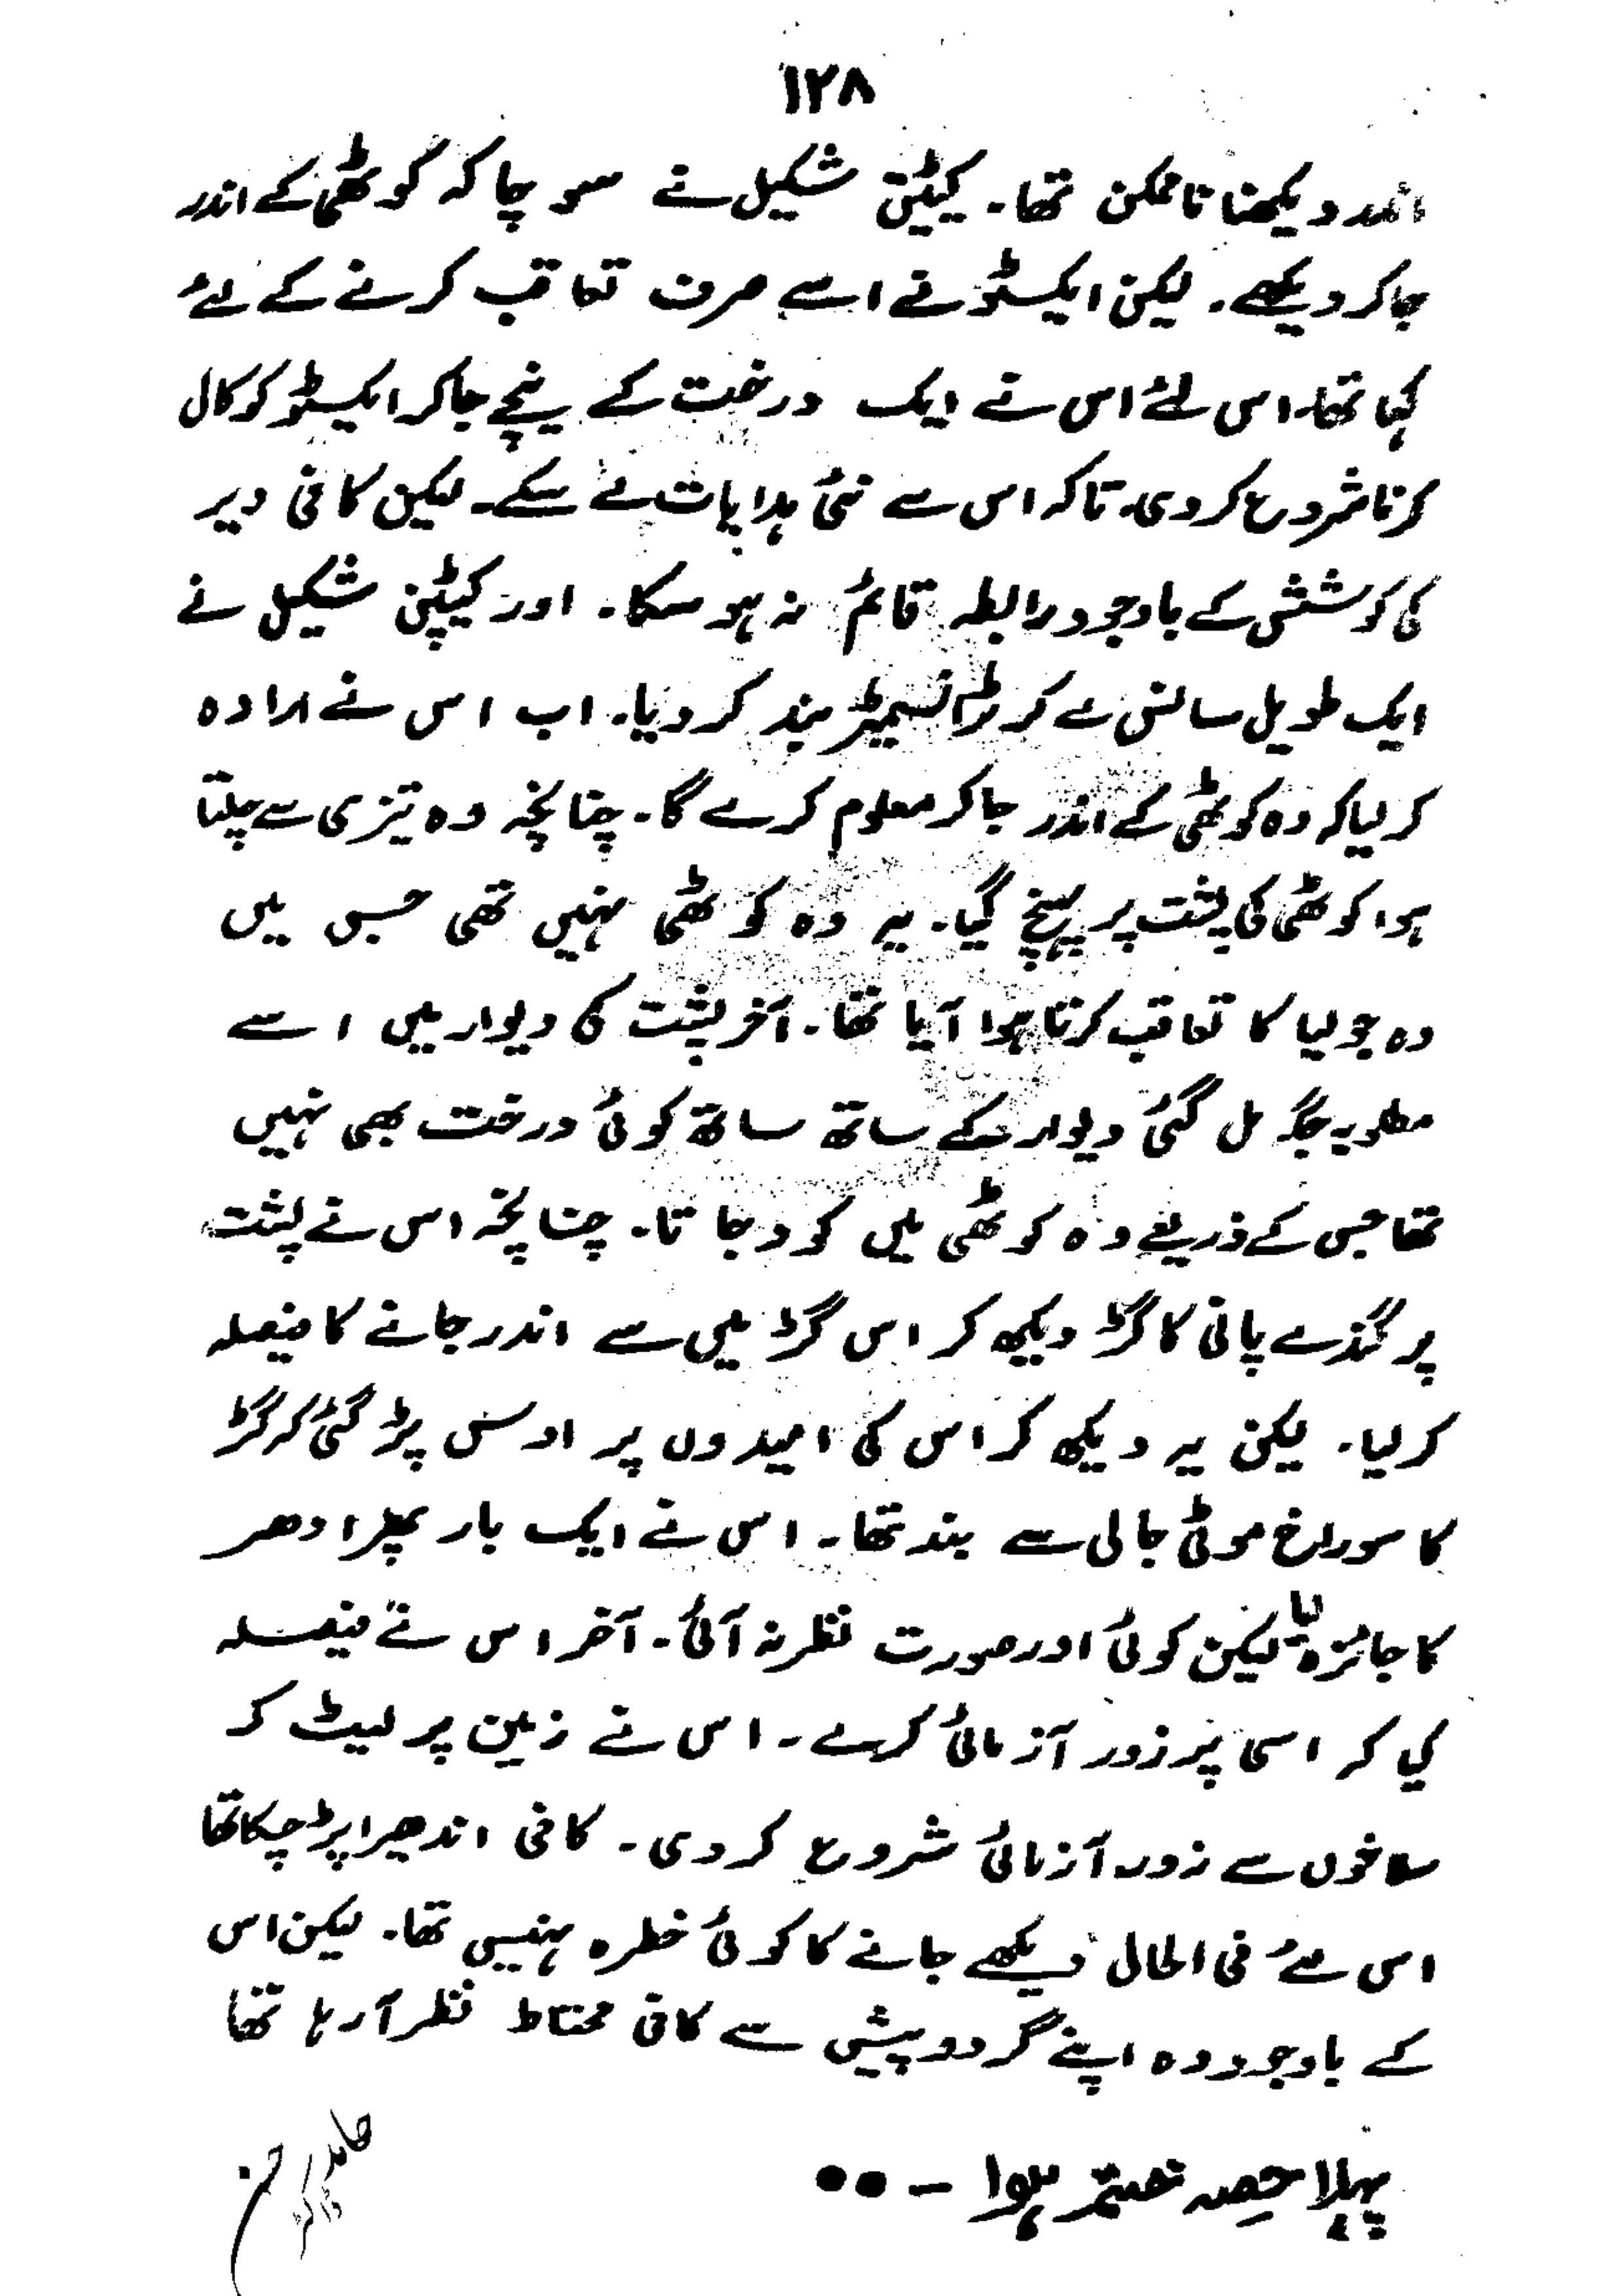 ۱۲۸
اندر دیکھنا ناممکن تھا۔ کیپٹن شکیل نے سوچا کہ کوٹھی کے اندر
جا کر دیکھے۔ لیکن ایکسٹو نے اسے صرف تعاقب کرنے کے لئے
کہا تھا۔ اس لئے اس نے ایک درخت کے نیچے جا کر ایکسٹو کو کال
کرنا شروع کر دی۔ تاکہ اس سے نئی ہدایات لے سکے۔ لیکن کافی دیر
کی کوشش کے باوجود رابطہ قائم نہ ہو سکا۔ اور کیپٹن شکیل نے
ایک طویل سانس لے کر ٹرانسمیٹر بند کر دیا۔ اب اس نے ارادہ
کر لیا کہ وہ کوٹھی کے اندر جا کر معلوم کرے گا۔ چنانچہ وہ تیزی سے چلتا
ہوا کوٹھی کی پشت پر پہنچ گیا۔ یہ وہ کوٹھی نہیں تھی جس میں
وہ جولیا کا تعاقب کرتا ہوا آیا تھا۔ آخر پشت کی دیوار میں اسے
مطلوبہ جگہ مل گئی دیوار کے ساتھ ساتھ کوئی درخت بھی نہیں
تھا جس کے ذریعے وہ کوٹھی میں کود جاتا۔ چنانچہ اس نے پشت
پر گندے پانی کا گٹر دیکھ کر اس گٹر میں سے اندر جانے کا فیصلہ
کر لیا۔ لیکن یہ دیکھ کر اس کی امیدوں پر اوس پڑ گئی کہ گٹر
کا سوراخ موٹی جالی سے بند تھا۔ اس نے ایک بار پھر ادھر
کا جائزہ لیا لیکن کوئی اور صورت نظر نہ آئی۔ آخر اس نے فیصلہ
کیا کہ اسی پر زور آزمائی کرے۔ اس نے زمین پر لیٹ کر
سلاخوں سے زور آزمائی شروع کر دی۔ کافی اندھیرا پڑ چکا تھا
اس لئے فی الحال دیکھے جانے کا کوئی خطرہ نہیں تھا۔ لیکن اس
کے باوجود وہ اپنے گرد و پیش سے کافی محتاط نظر آ رہا تھا
پہلا حصہ ختم ہوا - ••